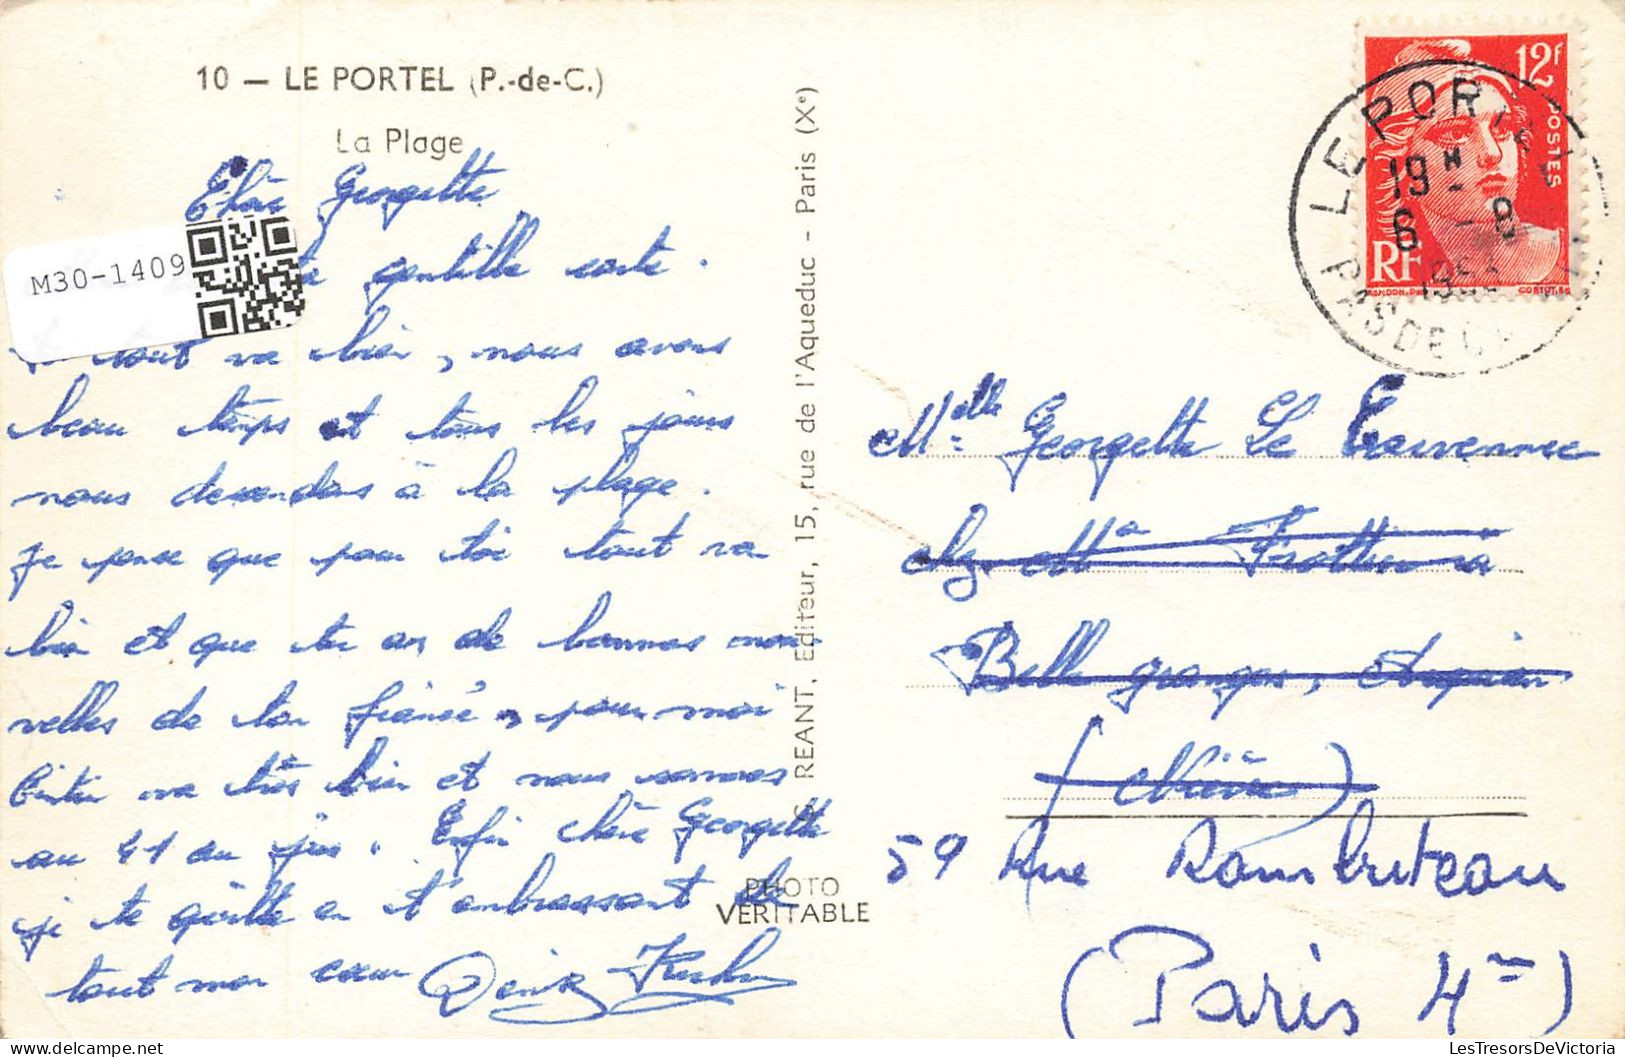 10 — LE PORTEL (P.-de-C.)
La Plage
Chère Georgette
gentille carte.
tout va bien, nous avons
beau temps et tous les jours
nous descendons à la plage.
Je pense que pour toi tout va
bien et que tu as de bonnes nou-
velles de ton fiancé, pour moi
va très bien et nous sommes
au 41 au jus. Enfin chère Georgette
je te quitte en t'embrassant de
tout mon cœur Denise
M30-1409
REANT, Editeur, 15, rue de l'Aqueduc - Paris (Xe)
PHOTO
VERITABLE
12f
POSTES
RF
LE PORTEL
19H
6 - 8
PAS DE C
Melle Georgette Le
chez Me
Belle granges,
(Nièvre)
59 Rue Rambuteau
(Paris 4me)
LesTresorsDeVictoria